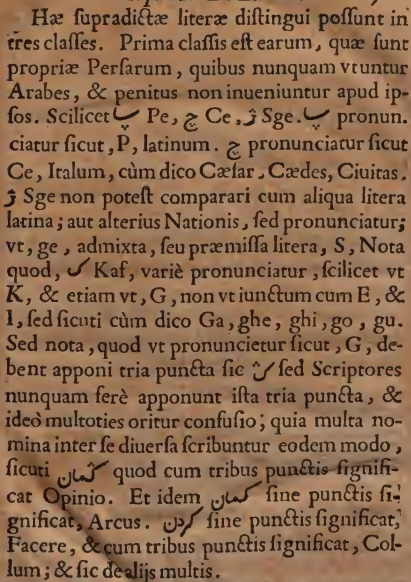 Hæ ſupradictæ literæ diſtingui poſſunt in
tres claſſes. Prima claſſis eſt earum, quæ ſunt
propriæ Perſarum, quibus nunquam vtuntur
Arabes, & penitus non inueniuntur apud ip-
ſos. Scilicet پ Pe, چ Ce, ژ Sge. پ pronun.
ciatur ſicut, P, latinum. چ pronunciatur ſicut
Ce, Italum, cùm dico Cæſar, Cædes, Ciuitas.
ژ Sge non poteſt comparari cum aliqua litera
latina; aut alterius Nationis, ſed pronunciatur;
vt, ge, admixta, ſeu præmiſſa litera, S, Nota
quod, ك Kaf, variè pronunciatur, ſcilicet vt
K, & etiam vt, G, non vt iunctum cum E, &
I, ſed ſicuti cùm dico Ga, ghe, ghi, go, gu.
Sed nota, quod vt pronuncietur ſicut, G, de-
bent apponi tria puncta ſic ڭ ſed Scriptores
nunquam ferè apponunt iſta tria puncta, &
ideò multoties oritur confuſio; quia multa no-
mina inter ſe diuerſa ſcribuntur eodem modo,
ſicuti ڭمان quod cum tribus punctis ſignifi-
cat Opinio. Et idem كمان ſine punctis ſi-
gnificat, Arcus. كردن ſine punctis ſignificat,
Facere, & cum tribus punctis ſignificat, Col-
lum; & ſic de alijs multis.